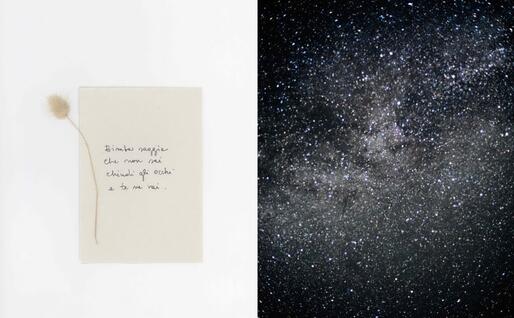 Bimba saggia
che non sai
chiudi gli occhi
e te ne vai.